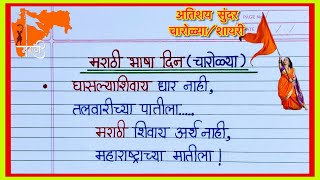 अतिशय सुंदर
चारोळ्या/शायरी
मराठी भाषा दिन (चारोळ्या)
घासल्याशिवाय धार नाही,
तलवारीच्या पातीला.....
मराठी शिवाय अर्थ नाही,
महाराष्ट्राच्या मातीला!